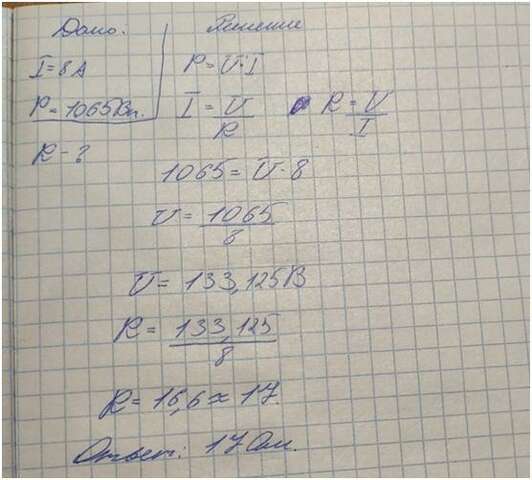 Дано.
I=8А
P=1065Вт.
R-?
Решение
P=U·I
I=U/R R=U/I
1065=U·8
U=1065/8
U=133,125В
R=133,125/8
R=16,6≈17
Ответ: 17 Ом.